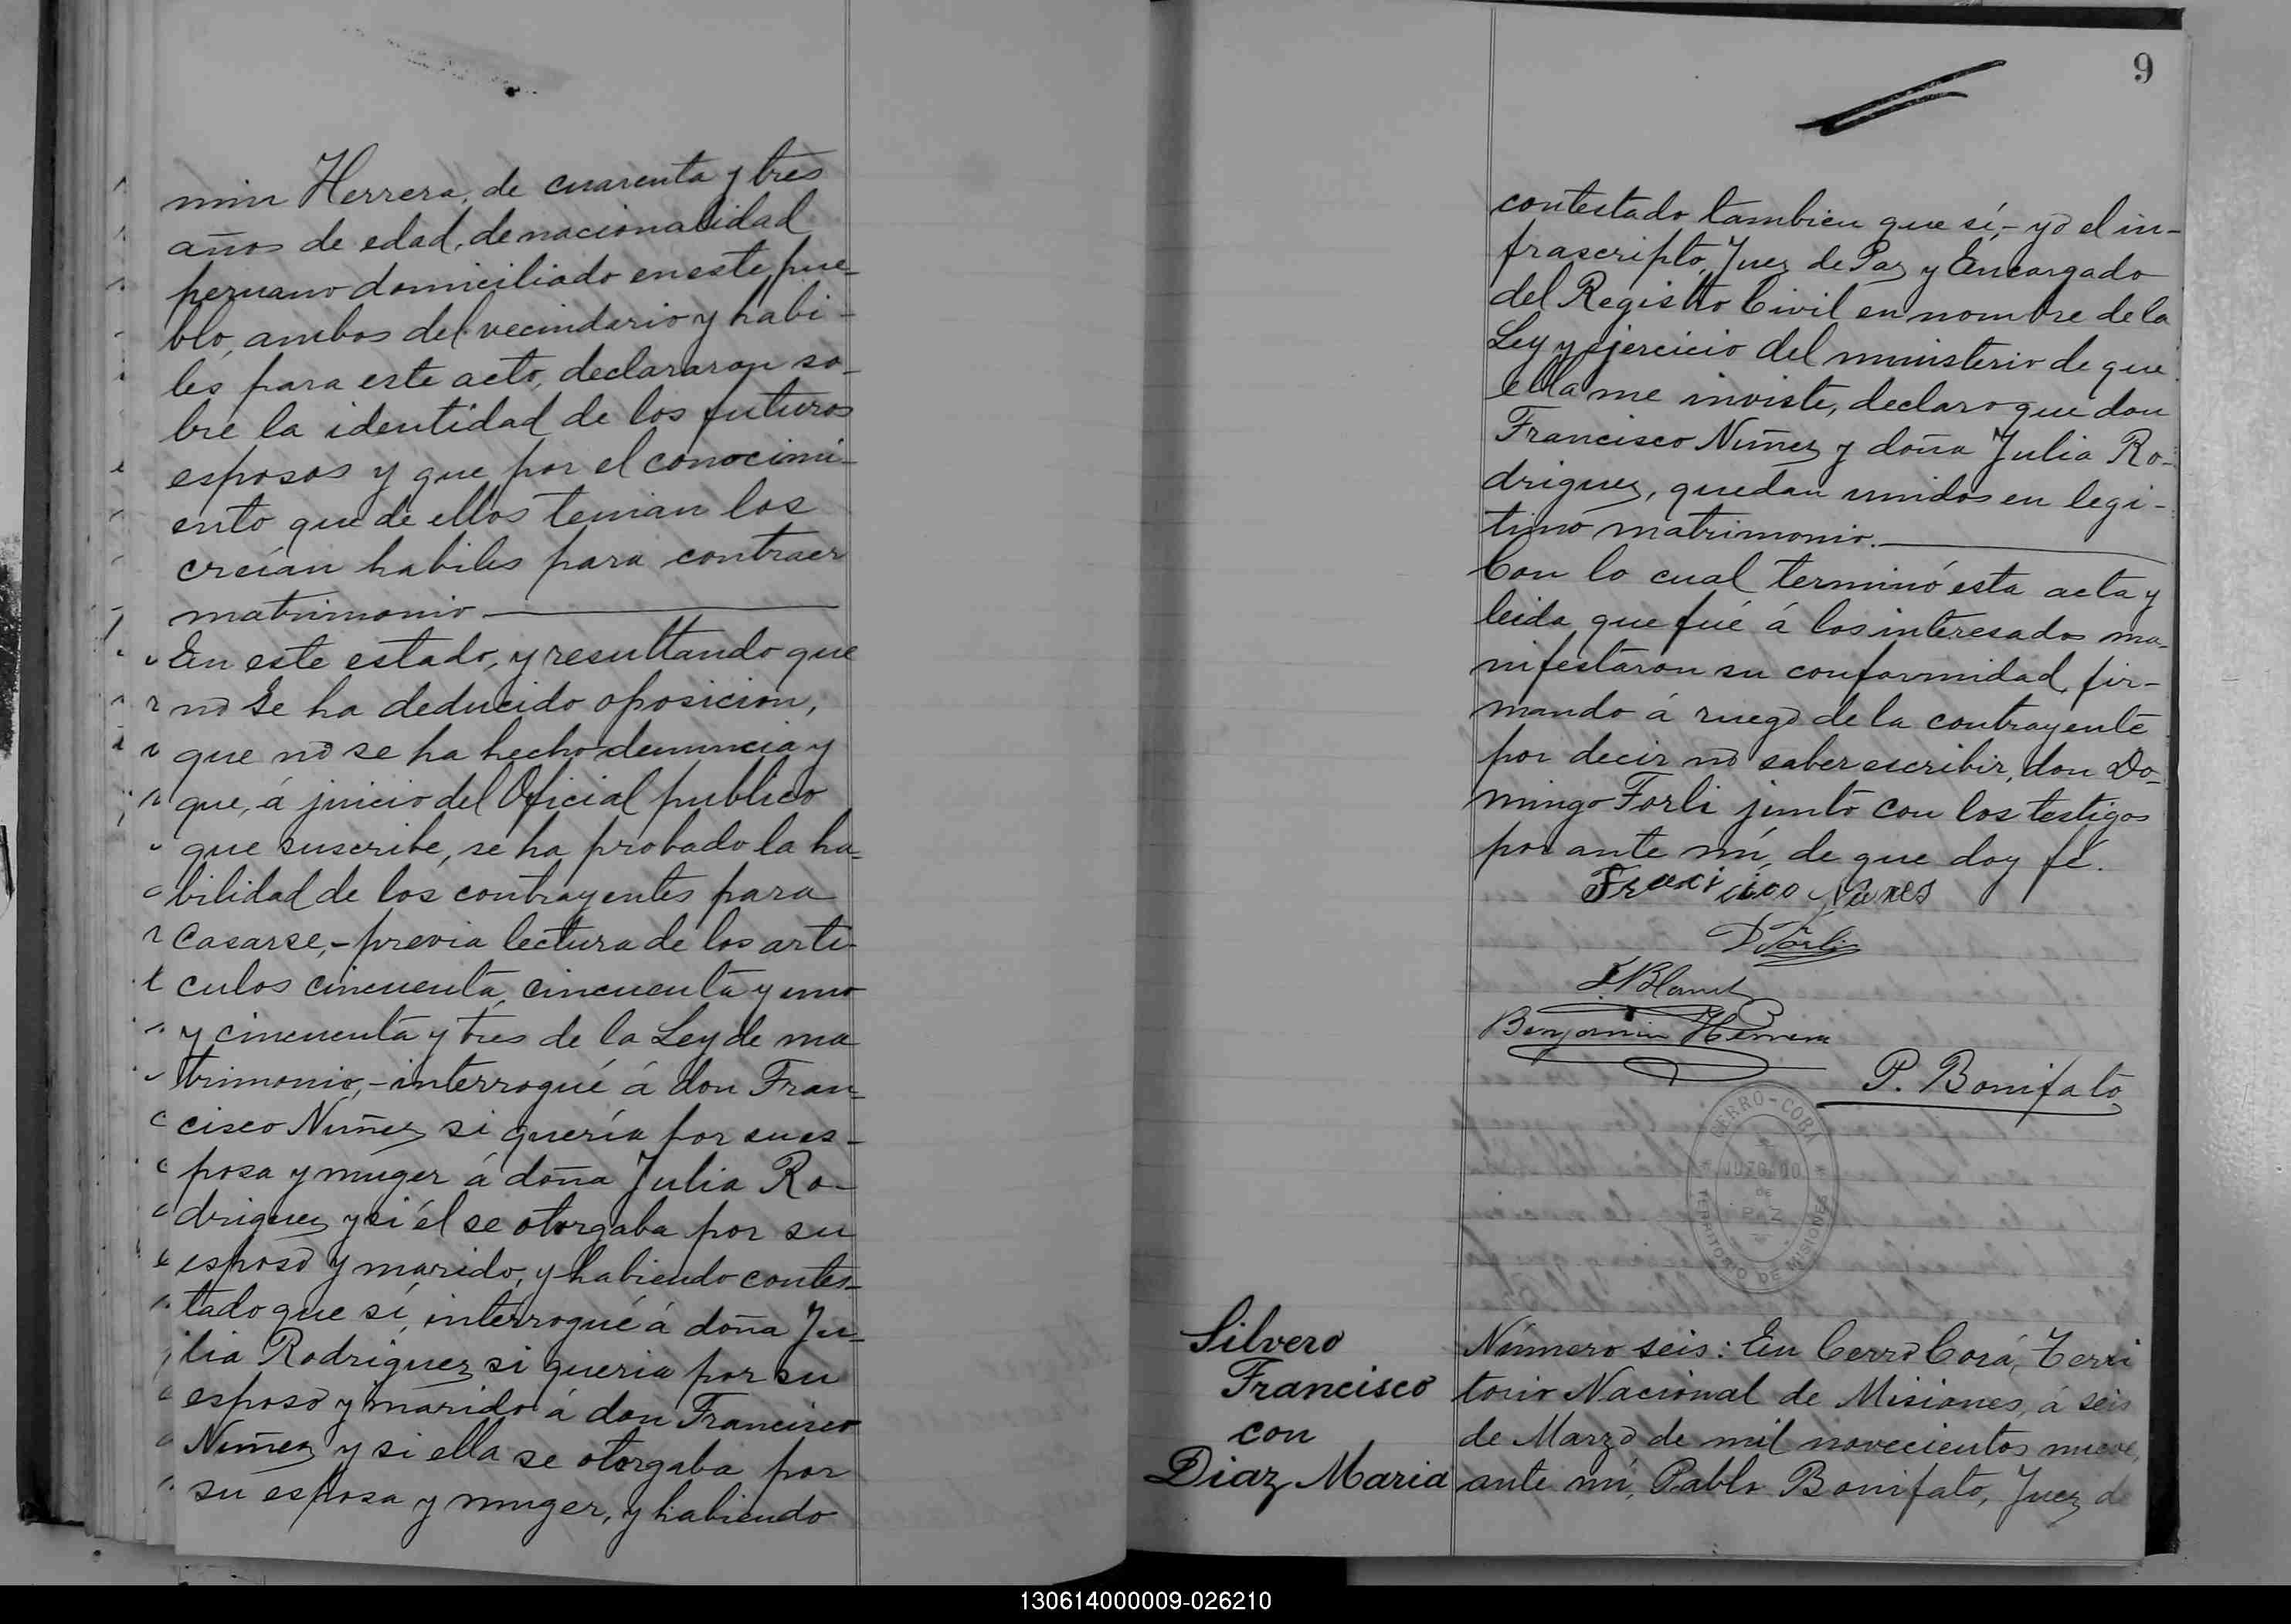 min Herrera, de cuarenta y tres
años de edad, de nacionalidad
peruano domiciliado en este pue-
blo, ambos del vecindario y habi-
les para este acto, declararon so-
bre la identidad de los futuros
esposos y que por el conocimi-
ento que de ellos tenian los
creían habiles para contraer
matrimonio
En este estado, y resultando que
no se ha deducido oposicion,
que no se ha hecho denuncia y
que, á juicio del Oficial publico
que suscribe, se ha probado la ha-
bilidad de los contrayentes para
casarse,- previa lectura de los arti-
culos cincuenta, cincuenta y uno
y cincuenta y tres de la Ley de ma
trimonio,- interrogué á don Fran-
cisco Nuñez si quería por su es-
posa y muger á doña Julia Ro-
driguez y si él se otorgaba por su
esposo y marido, y habiendo contes-
tado que sí, interrogué á doña Ju-
lia Rodriguez si queria por su
esposo y marido á don Francisco
Nuñez y si ella se otorgaba por
su esposa y muger, y habiendo
9
contestado tambien que sí,- yo el in-
frascripto, Juez de Paz y Encargado
del Registro Civil en nombre de la
Ley y ejercicio del ministerio de que
ella me inviste, declaro que don
Francisco Nuñez y doña Julia Ro-
driguez, quedan unidos en legi-
timo matrimonio.
Con lo cual terminó esta acta y
leida que fué á los interesados ma-
nifestaron su conformidad, fir-
mando á ruego de la contrayente
por decir no saber escribir, don Do-
mingo Forli junto con los testigos
por ante mí, de que doy fé.
Francisco Nunes
D Forli
Benjamin Herrera
P. Bonifato
CERRO-CORÁ
JUZGADO
DE
PAZ
TERRITORIO DE MISIONES
Silvero
Francisco
con
Diaz Maria
Número seis: En Cerro Corá, Terri
torio Nacional de Misiones, á seis
de Marzo de mil novecientos nueve,
ante mí, Pablo Bonifato, Juez d
130614000009-026210